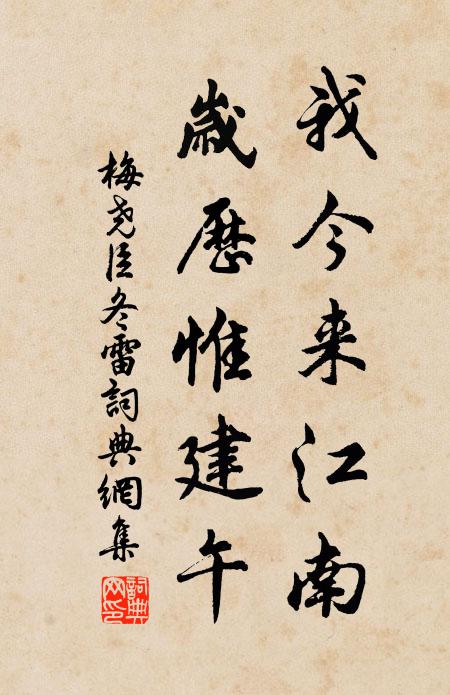 我今来江南
歲歷惟建午
梅尧臣冬雷詞典網集
詞典網印